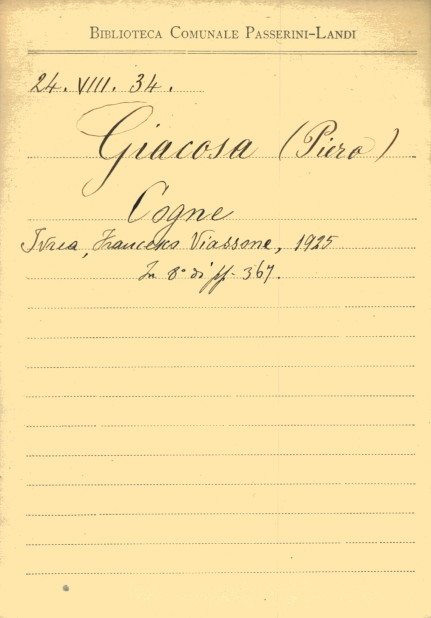 BIBLIOTECA COMUNALE PASSERINI-LANDI
24. VIII. 34.
Giacosa (Piero)
Cogne
Ivrea, Francesco Viassone, 1925
In 8° di pp. 367.